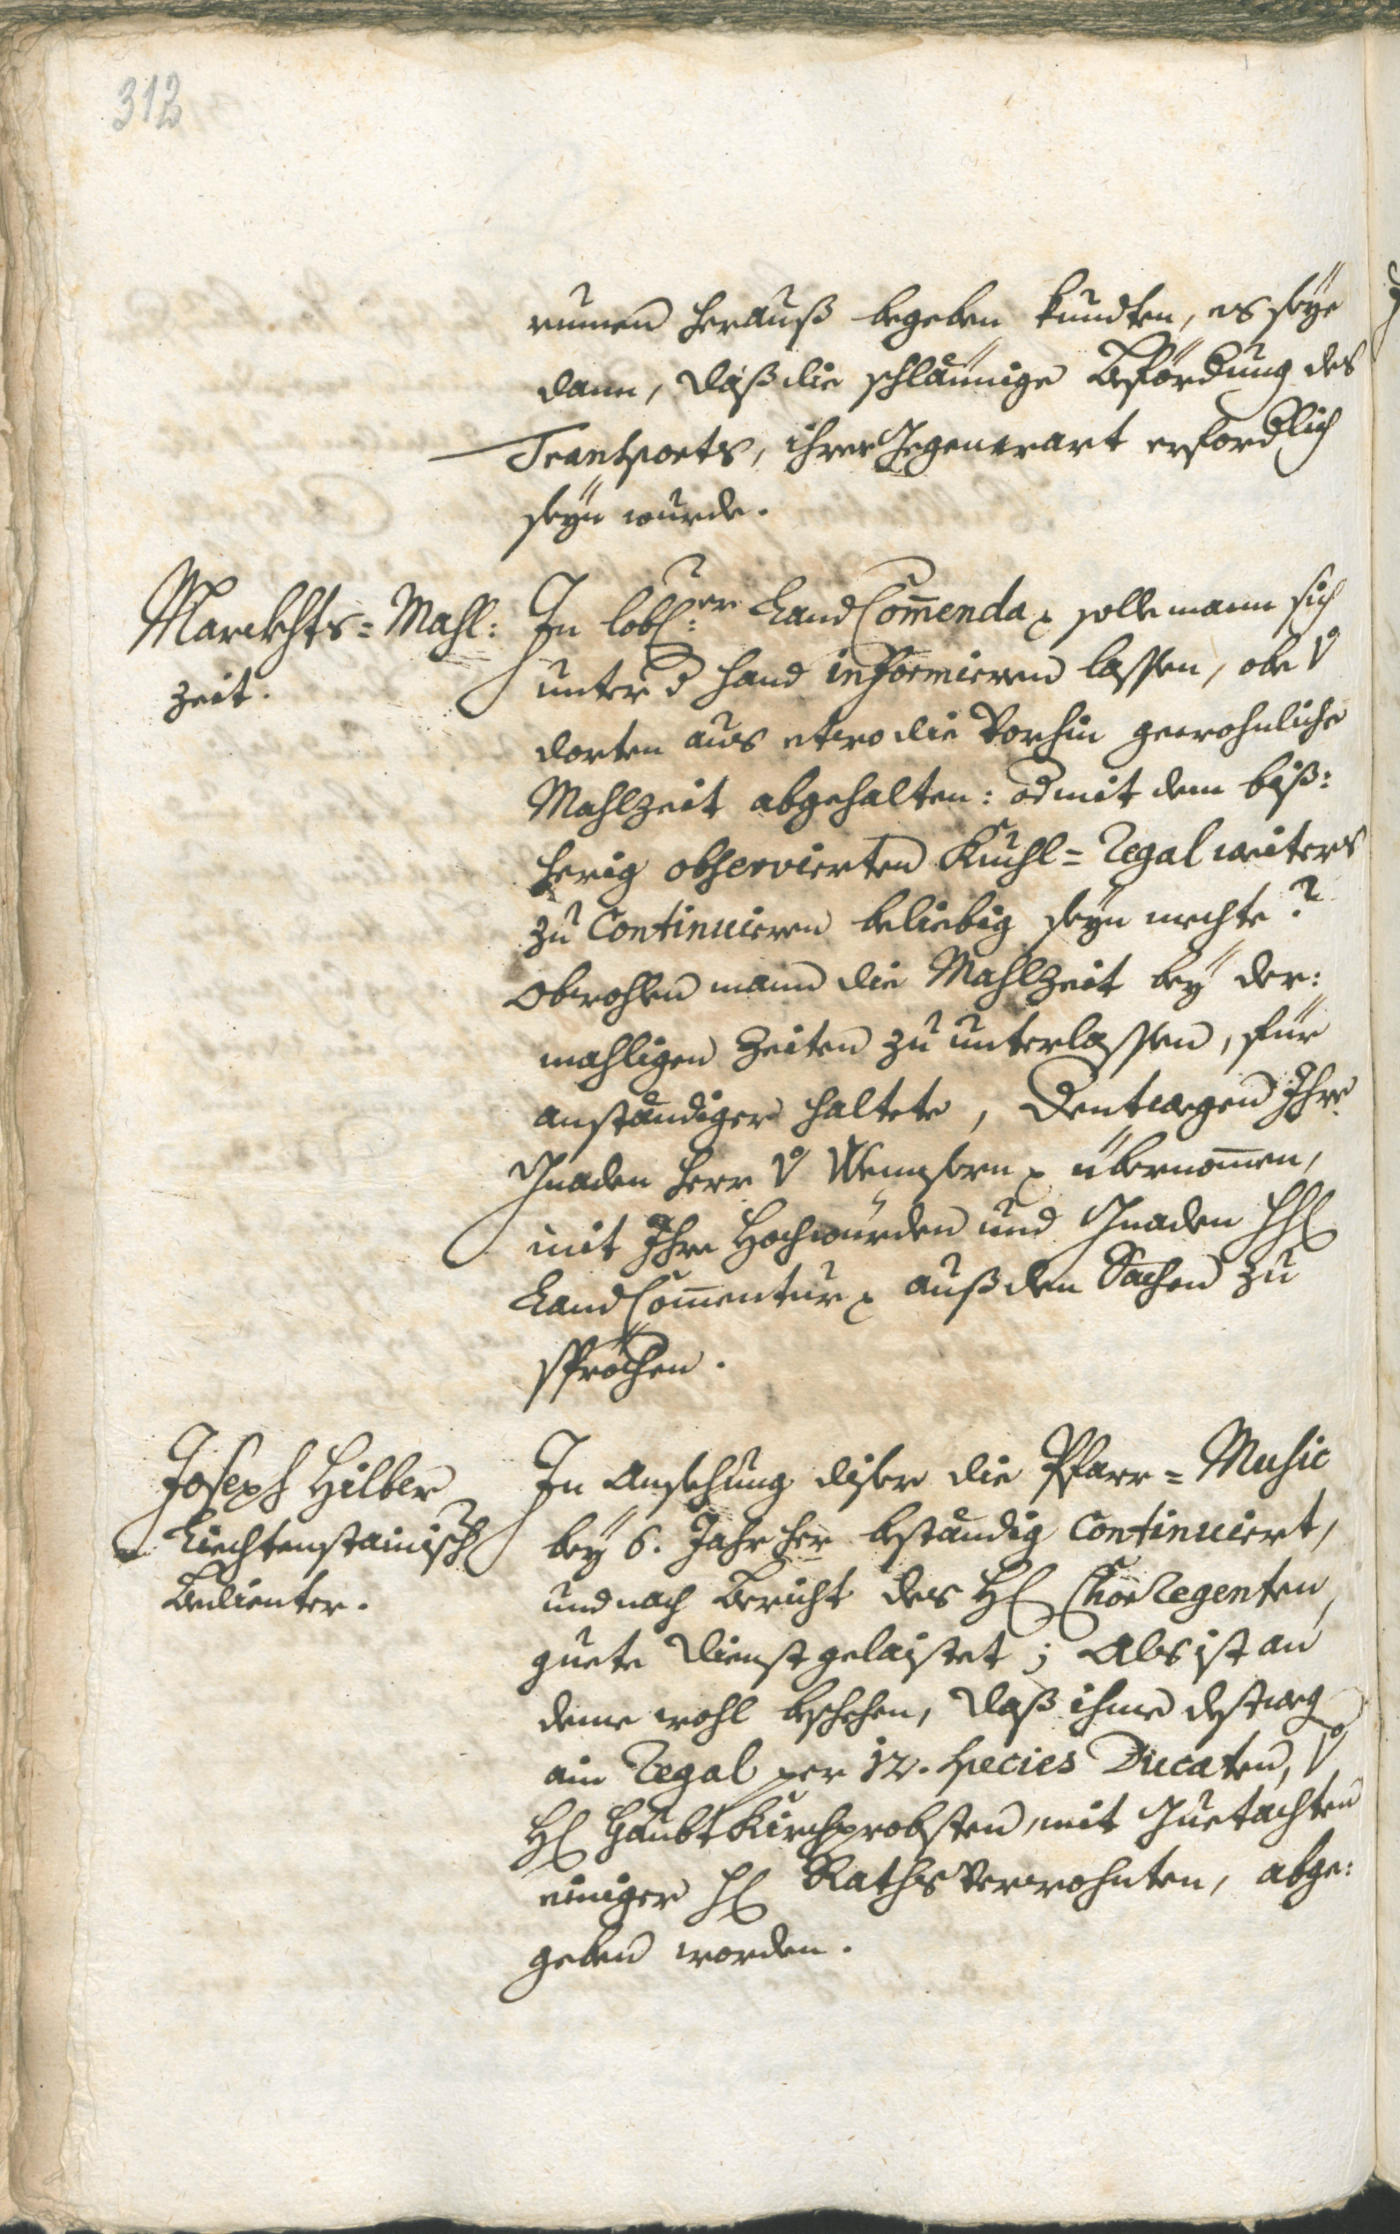 312
rumen herauß begeben kundten, es seÿe
dann, daß die schläunige Befördung des
Transports, ihrer Gegenwart erfordlich
seÿn wurde.
Marckhts=Mahl:
zeit.
In lobl:er LandCom̄enda solle mann sich
unter d hand informieren lassen, obe v
dorten aus etwo die Vorhin gewohnliche
Mahlzeit abgehalten: od mit dem biß:
herig observierten Kuchl=Regal weiters
zu Continuieren beliebig seÿn mechte?
Obwohlen mann die Mahlzeit beÿ der:
mahligen Zeiten zu unterlassen, für
anständiger haltete, Dentwegen Ihre
Gnaden Herr v übernom̄en,
mit Ihre Hochwürden und Gnaden HH
LandCom̄entur auß den Sachen zu
spröchen.
Joseph Hilber
Liechtenstainisch
Bedienter.
In Ansehung diser die Pfarr=Music
beÿ 6. Jahr her beständig Continuiert,
und nach Bericht des H ChorRegenten
guete dienst gelaistet; Als ist an
deme wohl beschehen, daß ihme destweg
ain Regal per 12. species Ducaten, v
H HaubtKirchprobsten, mit Guetachten
einiger H RathsVerwohnten, abge:
geben worden.